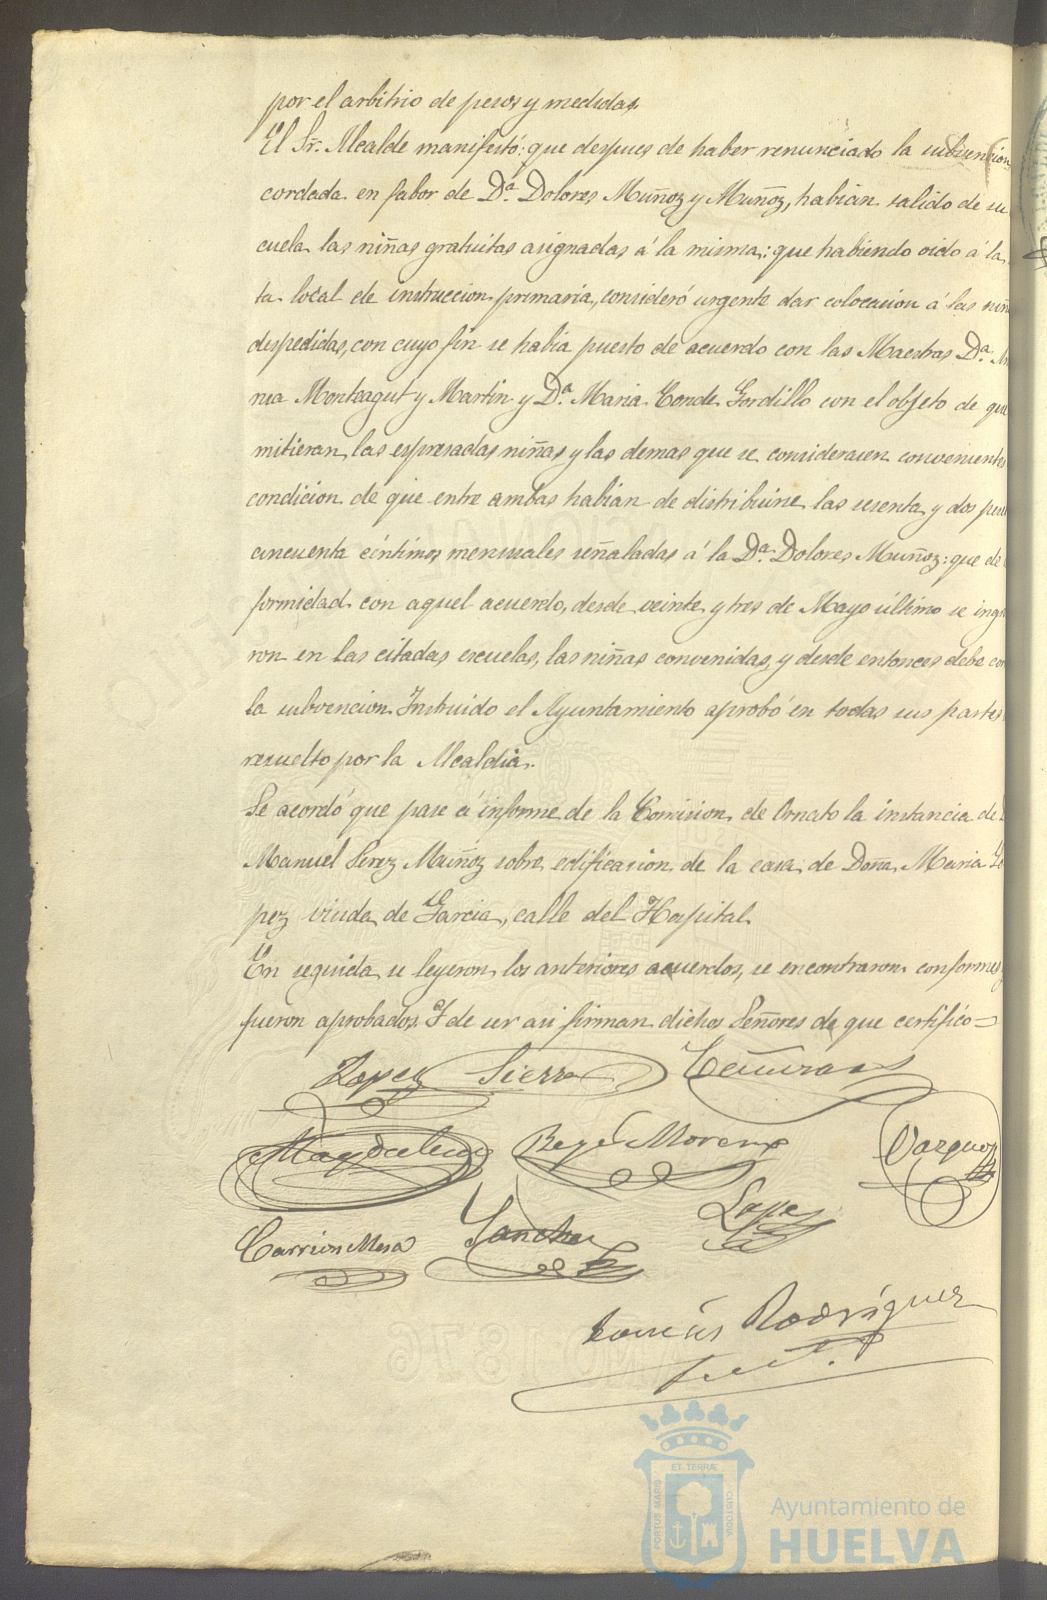 por el arbitrio de pesos y medidas.
El Sr. Alcalde manifestó: que despues de haber renunciado la subvencion
cordada en fabor de Dª. Dolores Muñoz y Muñoz, habian salido de su
cuela las niñas gratuitas asignadas á la misma: que habiendo oido á la
ta local de instruccion primaria, consideró urgente dar colocacion á las niñ
despedidas, con cuyo fin se habia puesto de acuerdo con las Maestras Dª.
nia Monteagut y Martin y Dª. Maria Conde Gordillo con el objeto de que
mitieran las espresadas niñas y las demas que se considerasen convenientes
condicion de que entre ambas habian de distribuirse las sesenta y dos pes
cincuenta céntimos mensuales señaladas á la Dª. Dolores Muñoz: que de
formidad con aquel acuerdo, desde veinte y tres de Mayo último se ingr
ron en las citadas escuelas, las niñas convenidas, y desde entonces debe cor
la subvencion. Instruido el Ayuntamiento aprobó en todas sus partes
resuelto por la Alcaldia.
Se acordó que pase á informe de la Comision de Ornato la instancia de
Manuel Perez Muñoz sobre edificacion de la casa de Doña Maria Lo
pez viuda de Garcia, calle del Hospital.
En seguida se leyeron los anteriores acuerdos, se encontraron conformes y
fueron aprobados. Y de ser asi firman dichos Señores de que certifico=
Lopez Sierra
Magdalena Reyes Moreno Vazquez
Carrion Mesa Sanchez Lopez
Tomás Rodríguez
AÑO 1876
ET TERRÆ
PORTUS MARIS
CUSTODIA
Ayuntamiento de
HUELVA